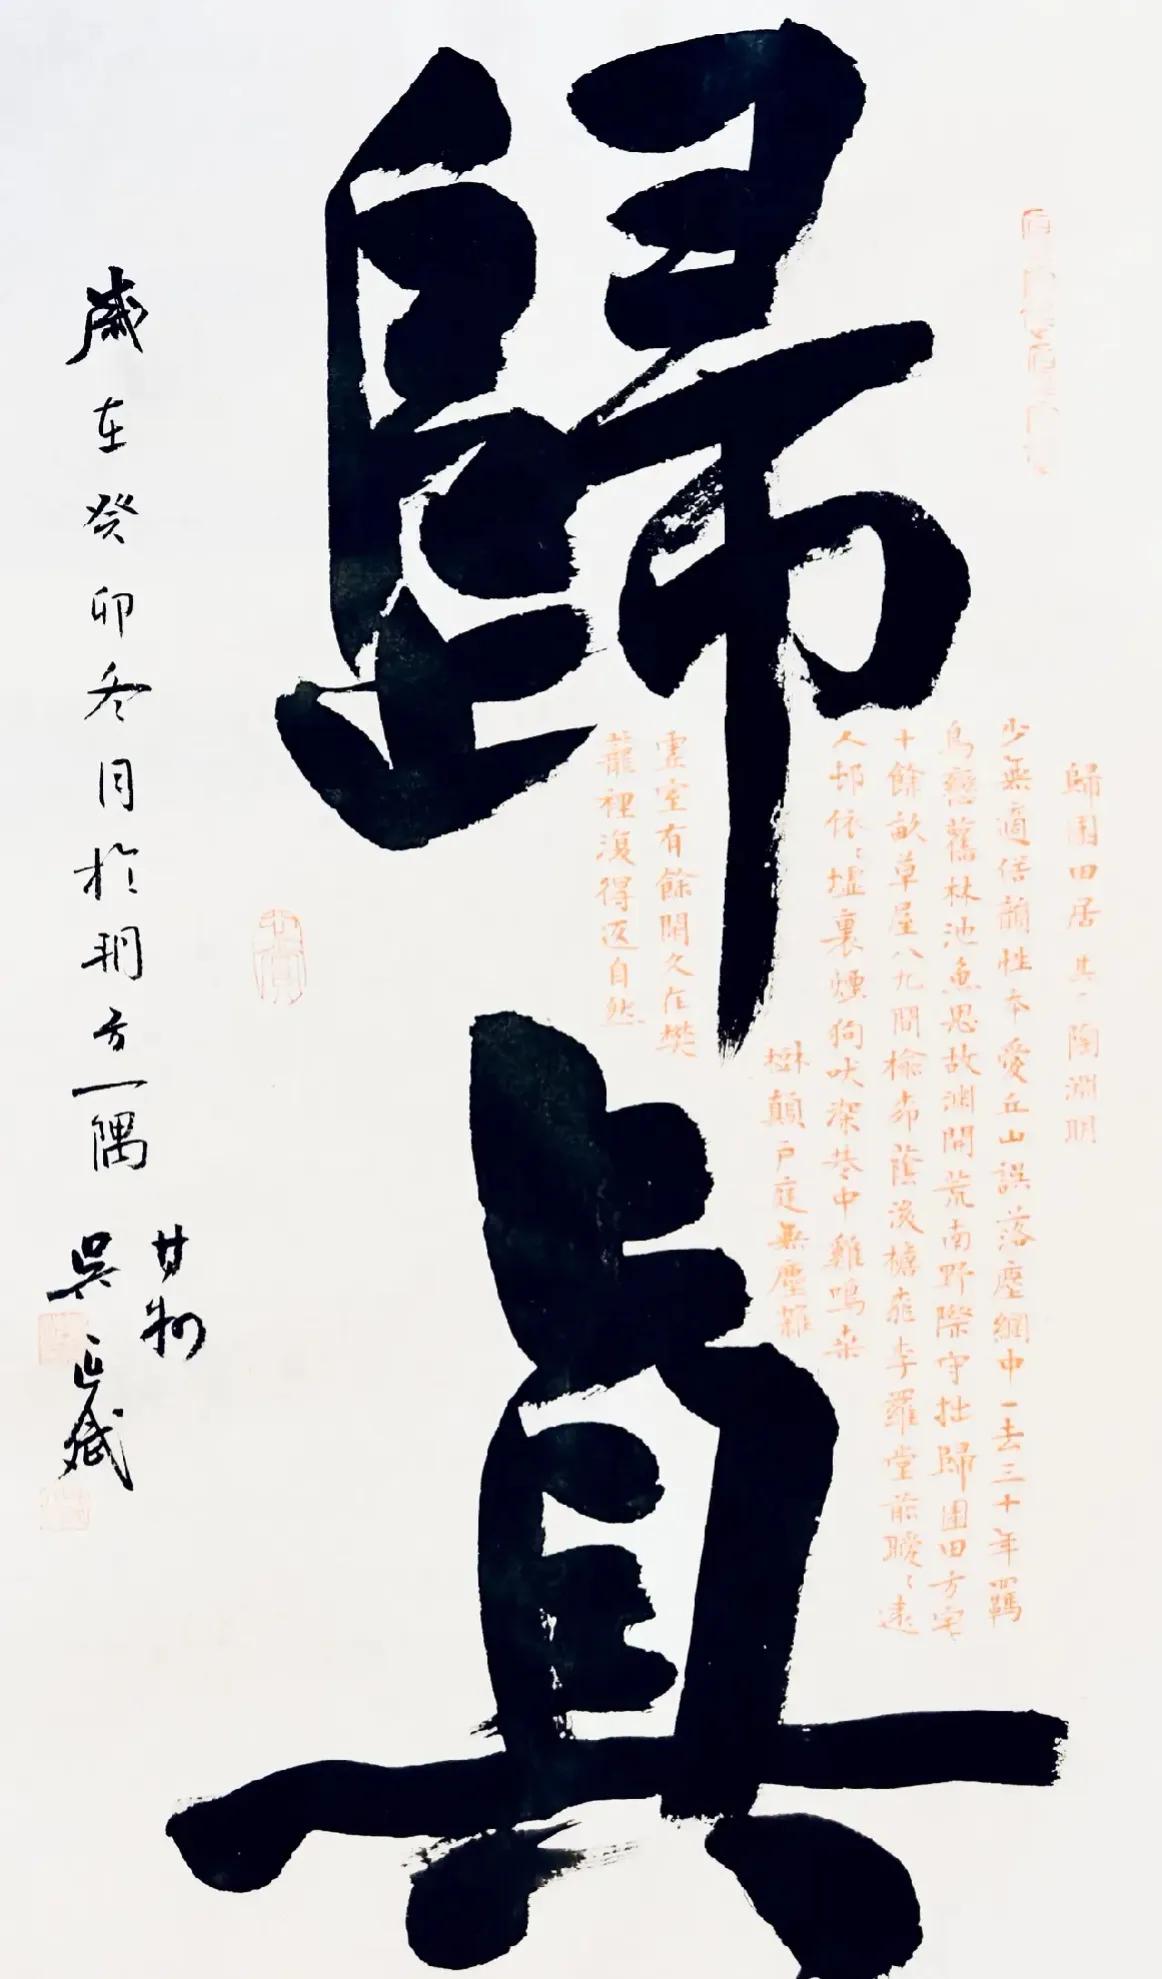 歸真
歸園田居 其一 陶淵明
少無適俗韻性本愛丘山誤落塵網中一去三十年羈
鳥戀舊林池魚思故淵開荒南野際守拙歸園田方宅
十餘畝草屋八九間榆柳蔭後檐桃李羅堂前曖〻遠
人邨依〻墟裏煙狗吠深巷中雞鳴桑
樹顛戶庭無塵雜
虛室有餘閒久在樊
籠裡復得返自然
歲在癸卯冬月於朔方一隅
甘州
吳正斌